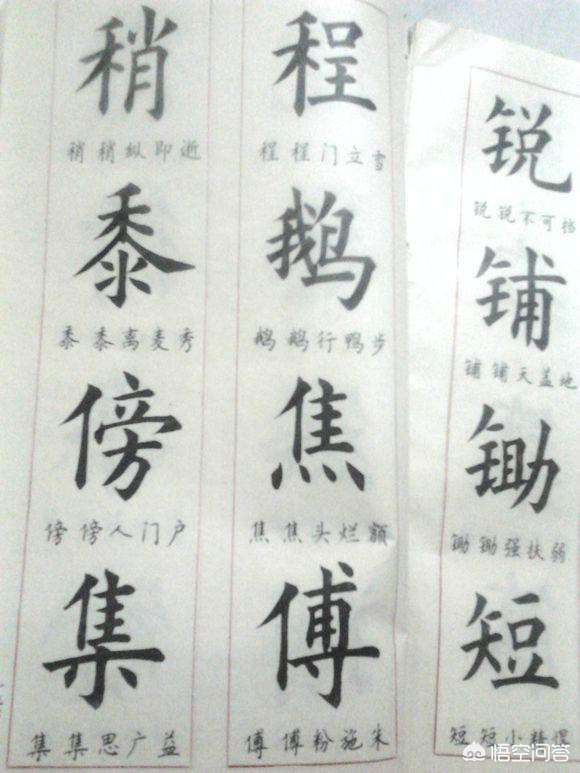 稍
稍 稍纵即逝
黍
黍 黍离麦秀
傍
傍 傍人门户
集
集 集思广益
程
程 程门立雪
鹅
鹅 鹅行鸭步
焦
焦 焦头烂额
傅
傅 傅粉施朱
锐
锐 锐不可挡
铺
铺 铺天盖地
锄
锄 锄强扶弱
短
短 短小精悍
悟空问答